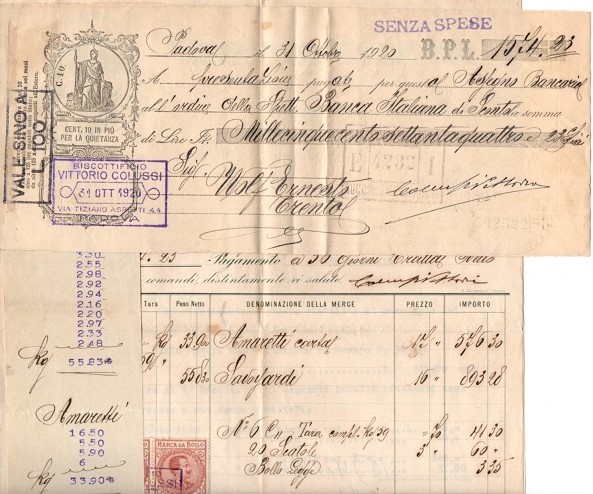 SENZA SPESE
Padova, il 31 Ottobre 1920 B.P.L. 1574.23
A presentazione pagate per questo Assegno Bancario
all'ordine della Spett. Banca Italiana di Sconto la somma
di Lire It. Millecinquecento settantaquattro e 23
C. 10.
CENT. 10 IN PIÙ
PER LA QUIETANZA
VALE SINO A
L. 100
BISCOTTIFICIO
VITTORIO COLUSSI
31 OTT 1920
VIA TIZIANO ASPETTI 44
Sig.
Ernesto
Trento
Colussi Vittorio
Pagamento a 30 giorni
comandi, distintamente vi saluto Colussi Vittorio
Tara Peso Netto DENOMINAZIONE DELLA MERCE PREZZO IMPORTO
Kg 33.900 Amaretti carta 17 " 576 30
55.830 Savoiardi 16 " 893 28
N° 6 Cn Tara compl. Kg 39 = 70 41 30
20 Scatole 3 " 60 "
Bollo Legge 3 35
MARCA DA BOLLO
3.30
2.55
2.98
2.92
2.94
2.16
2.20
2.97
2.33
2.48
Kg 55.83*
Amaretti
16.50
5.50
5.90
6
Kg 33.90*